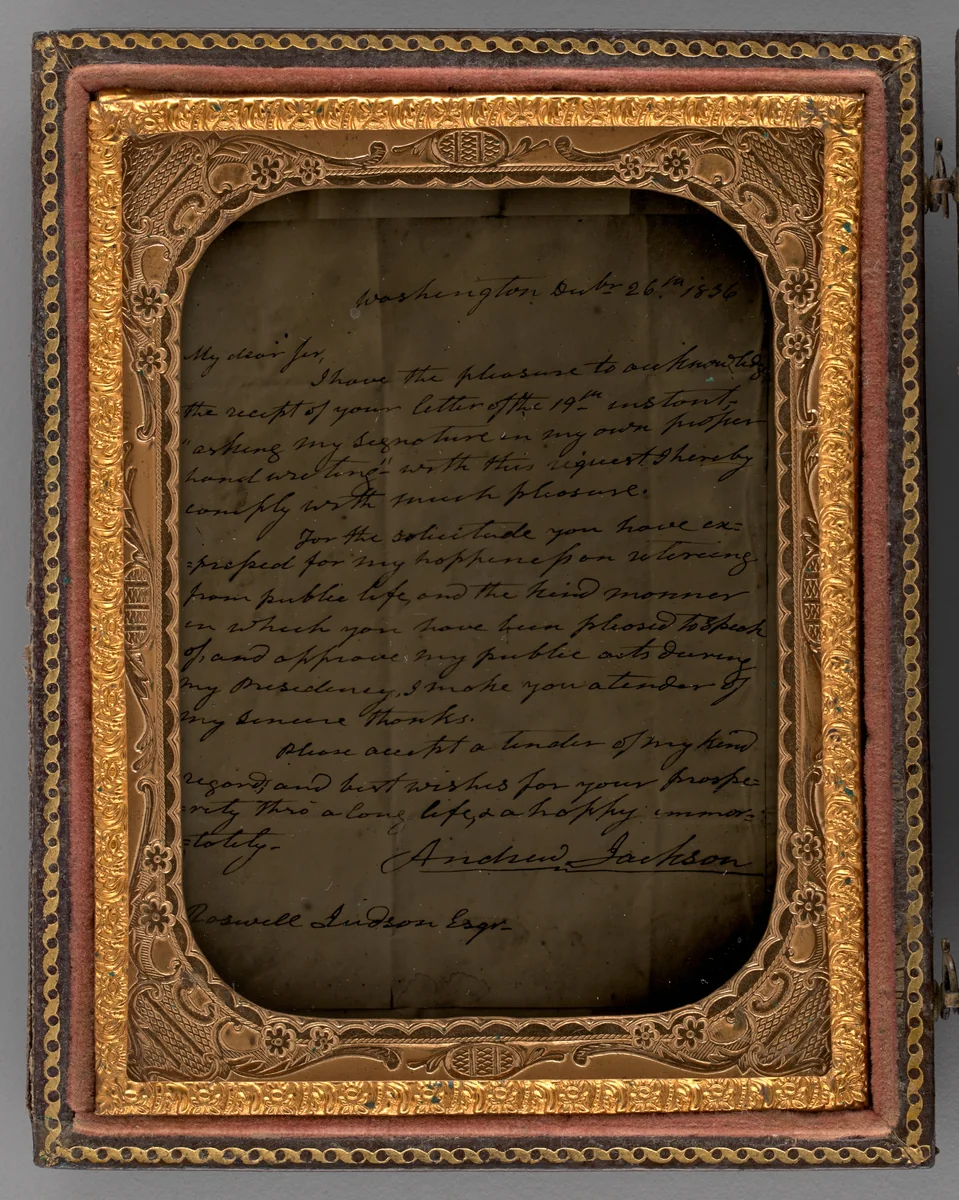 Washington Decbr 26th 1836
My dear Sir,
I have the pleasure to acknowledge
the receipt of your letter of the 19th instant,
"asking my signature in my own proper
hand writing" with this request I hereby
comply with much pleasure.
For the solicitude you have ex=
=pressed for my happiness on retireing
from public life, and the kind manner
in which you have been pleased to speak
of, and approve my public acts during
my Presidency, I make you a tender of
my sincere thanks.
Please accept a tender of my kind
regard, and best wishes for your prospe=
=rity thro a long life, & a happy immor=
=tality.
Andrew Jackson
Roswell Judson Esqr.